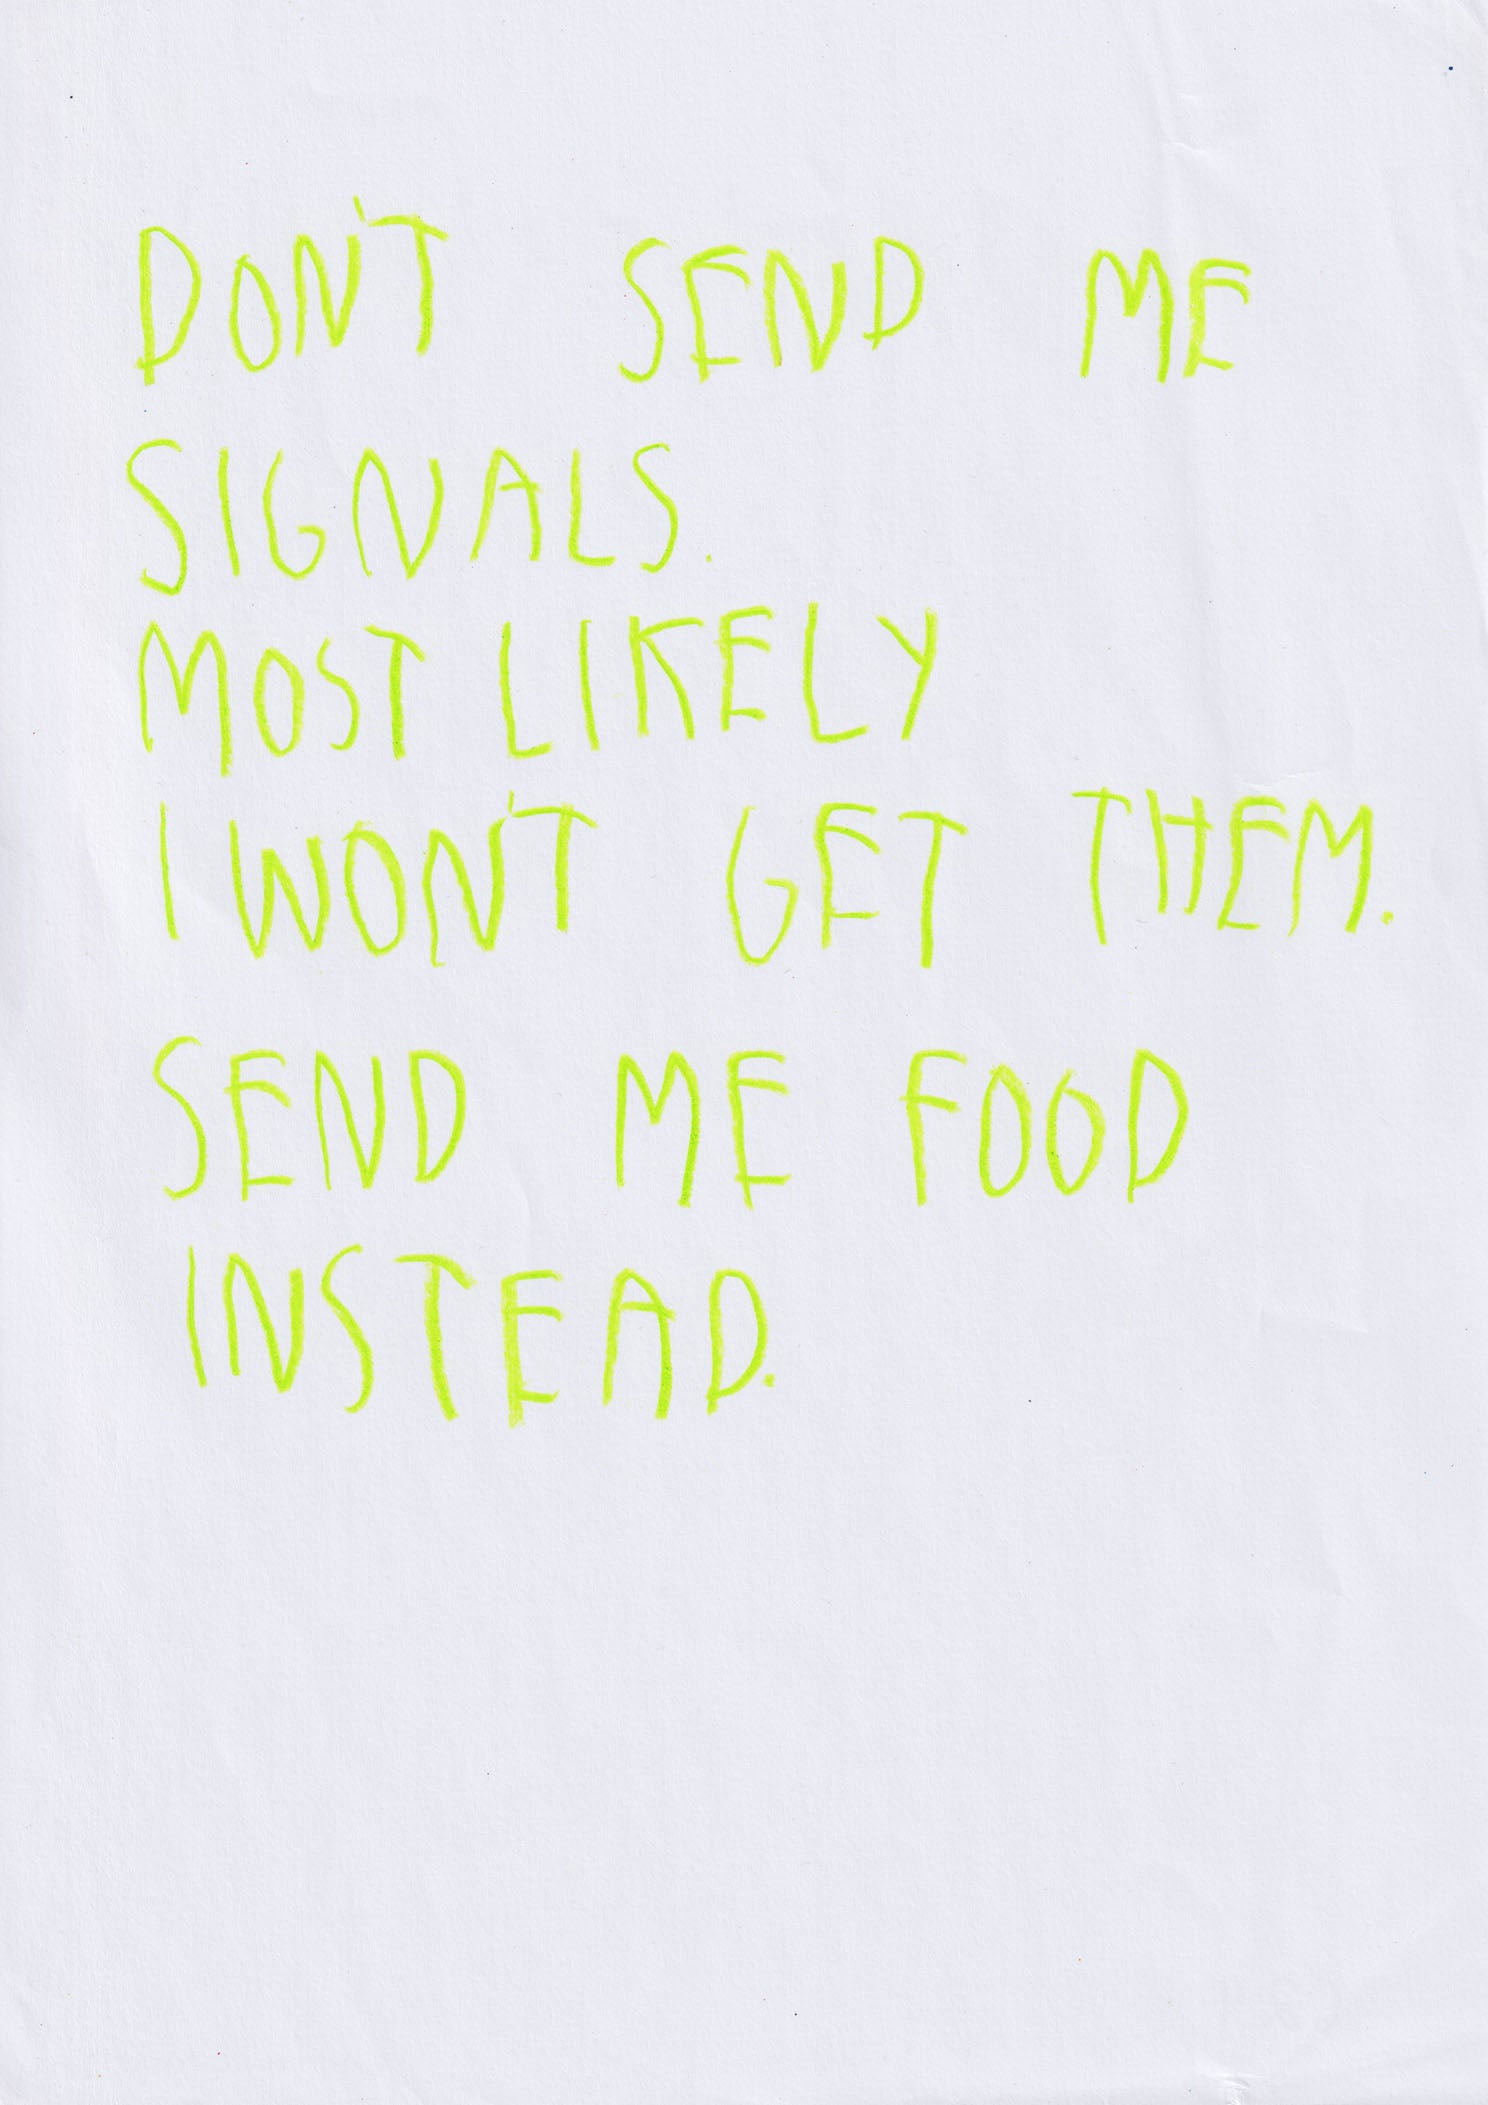 DON'T SEND ME
SIGNALS.
MOST LIKELY
I WON'T GET THEM.
SEND ME FOOD
INSTEAD.